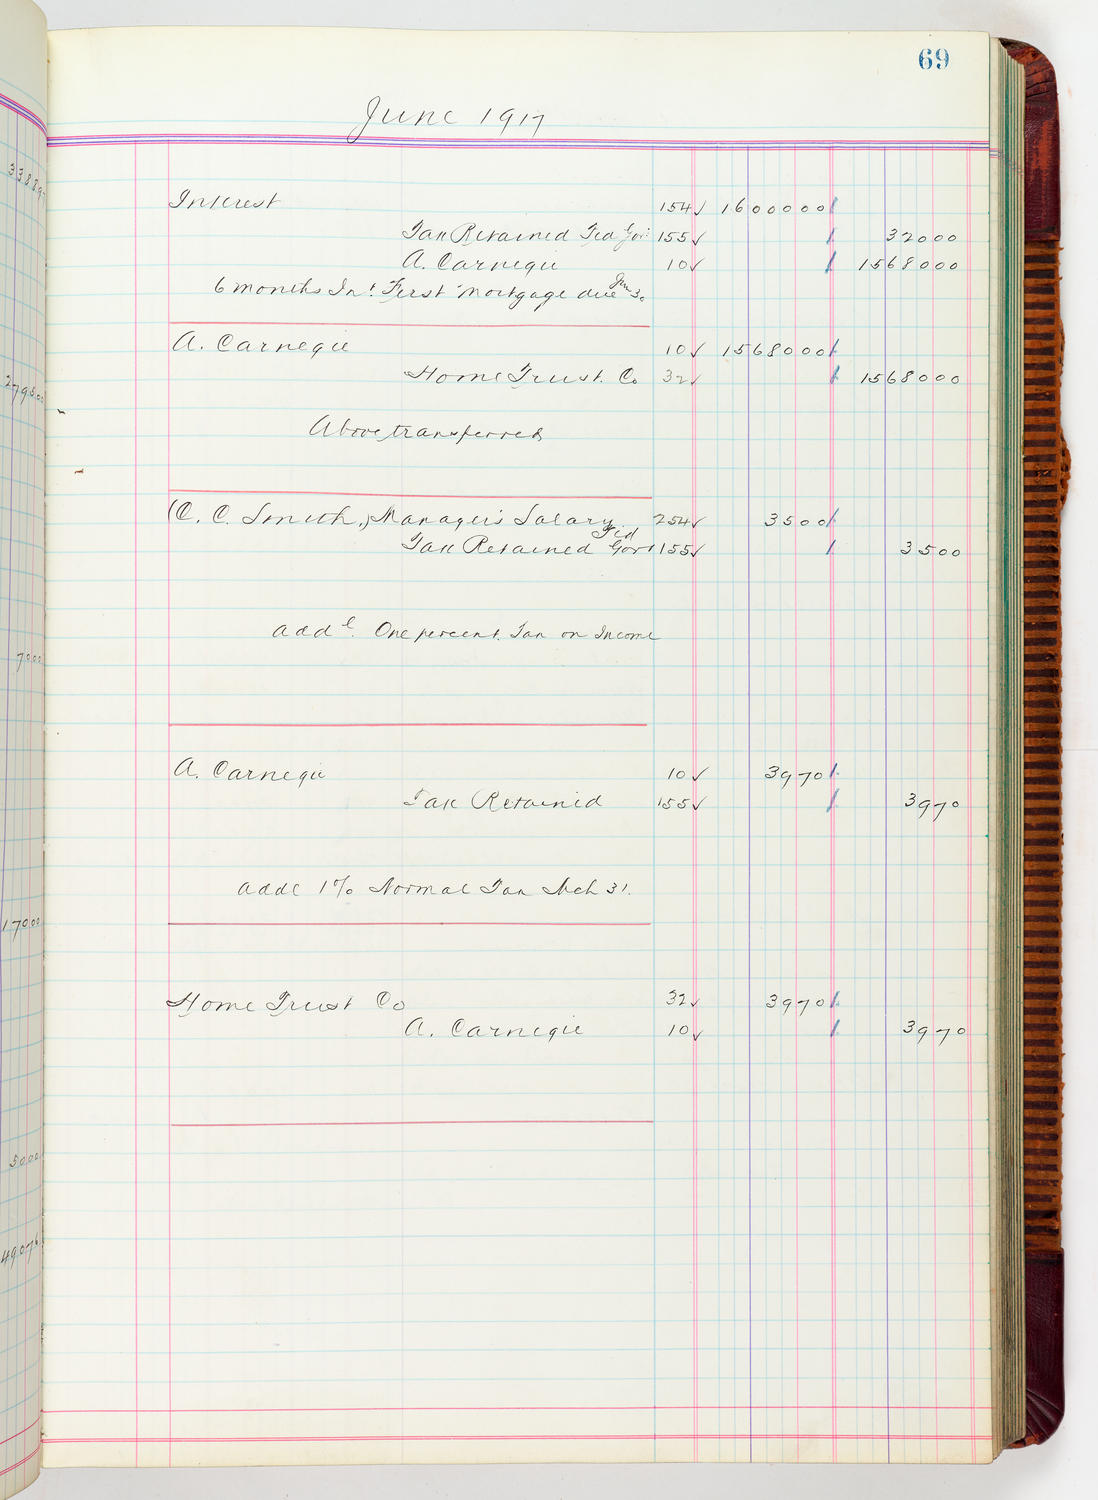 69
June 1917
33889
Interest 154✓ 1600000
Tax Retained Fed Gov: 155✓ 32000
A. Carnegie 10✓ 1568000
6 months Int. First Mortgage due June 30
A. Carnegie 10✓ 1568000
Home Trust. Co 32✓ 1568000
279500
Above transferred
(C. C. Smith,) Manager's Salary 254✓ 3500
Tax Retained Fed Govt 155✓ 3500
addl. One percent. Tax on Income
7000
A. Carnegie 10✓ 3970
Tax Retained 155✓ 3970
addl 1% Normal Tax Mch 31.
17000
Home Trust Co 32✓ 3970
A. Carnegie 10✓ 3970
5000
49076